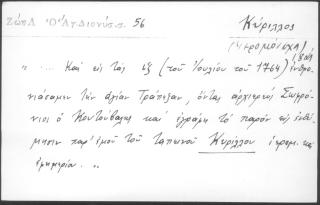 Ζώης Ὁ Ἅγ. Διονύσ. σ. 56
Κύριλλος
(ἱερομόναχος)
"... Καὶ εἰς τὰς ιξ (τοῦ Ἰουλίου τοῦ 1764) ἐνθρο-
νιάσαμεν τὴν ἁγίαν Τράπεζαν, ὄντας ἀρχιερεὺς Σωφρό-
νιος ὁ Κουτούβαλης καὶ ἐγράφη τὸ παρὸν εἰς ἐνθύ-
μησιν παρ' ἐμοῦ τοῦ ταπεινοῦ Κυρίλλου ἱερομ. καὶ
ἐφημερίου. "